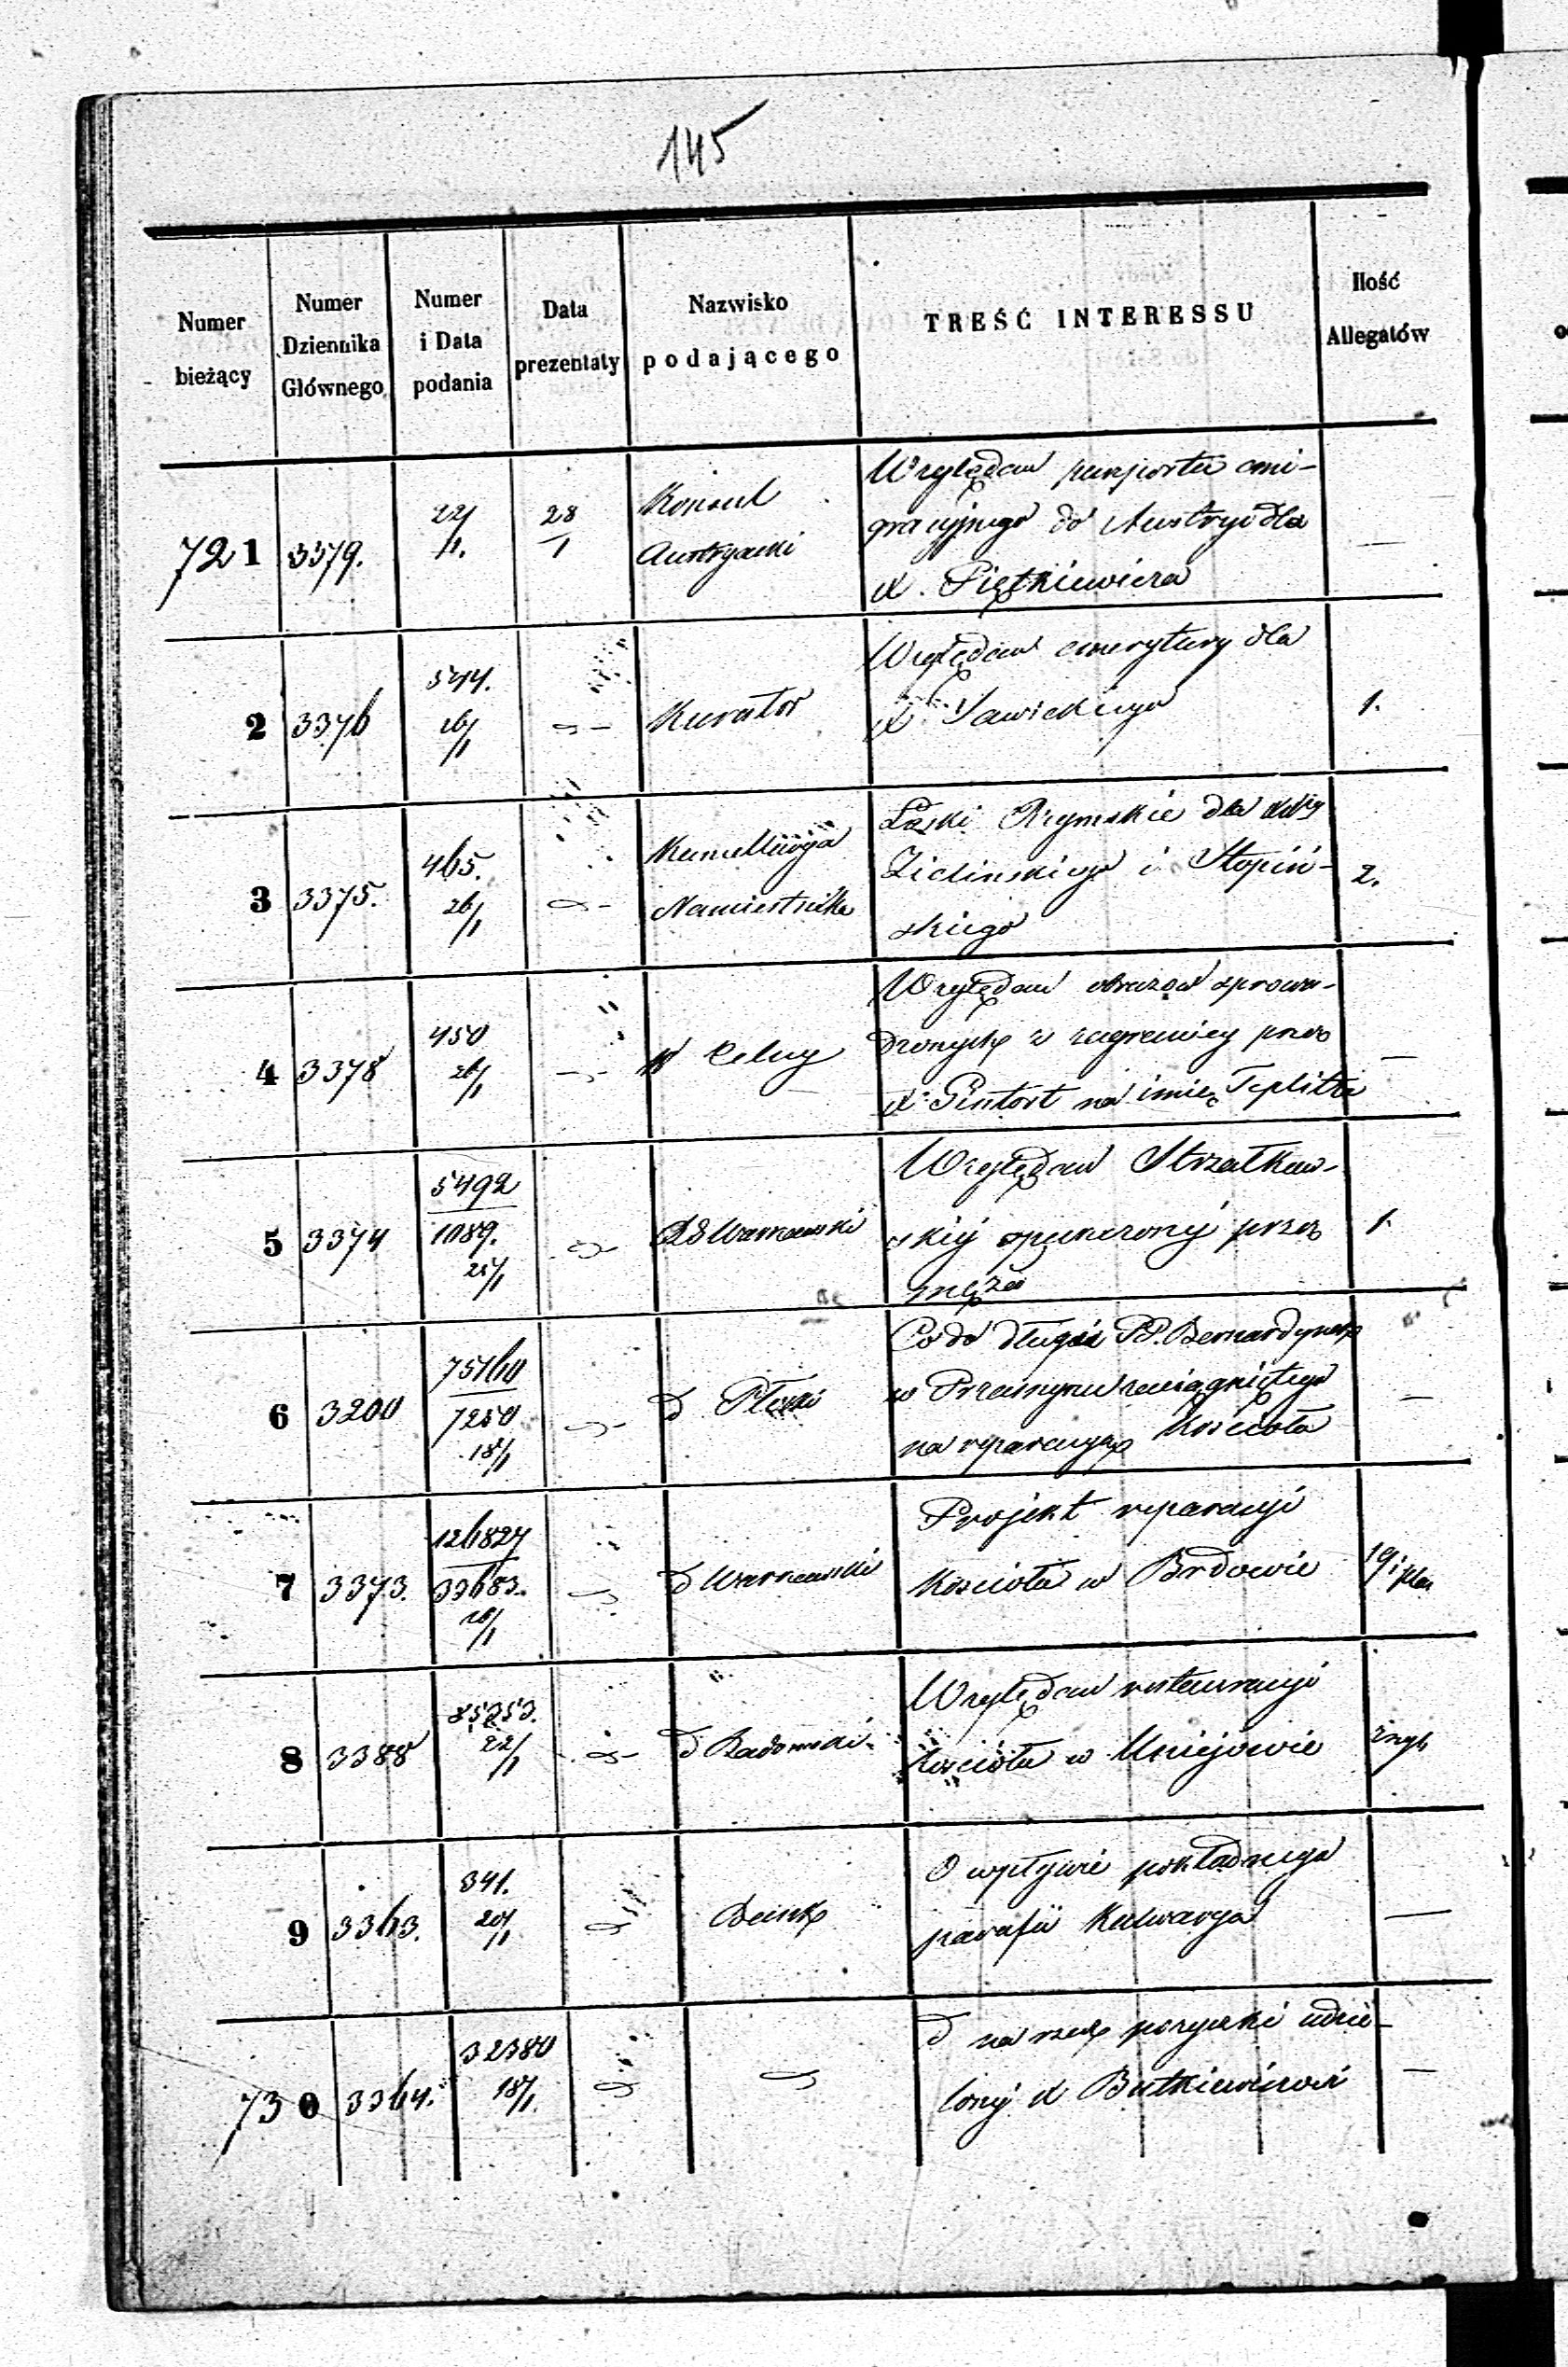 145
Numer bieżący
Numer Dziennika Głównego
Numer i Data podania
Data prezentaty
Nazwisko podającego
TREŚĆ INTERESSU
Ilość Allegatów
721 3379. 22/1. 28/1 Konsul Austryacki
Względem paszportu emi-
gracyjnego do Austryi dla
X. Piętkiewicza —
2 3376 544. 26/1 Kurator
Względem emerytury dla
X. Sawickiego 1.
3 3375. 465. 26/1 Kancellaryja Namiestnika
Łaski Rzymskie dla
Zielinskiego i Stopiń-
skiego 2.
4 3378 450 26/1 W Celny
Względem obrazów sprowa-
dzonych z zagranicy przez
X. Pintort na imię Teplitza —
5 3374 5492/1089. 25/1 Warszawski
Względem Strzałkow-
skiy opuszczonij przez
męża 1.
6 3200 75160/7250 18/1 d Płocki
Co do długu PP. Bernardynek
w Przasnyszu zaciągniętego
na reparacyą Kościoła —
7 3373. 126827/33683. 26/1 d Warszawski
Projekt reparacyi
Kościoła w Brdowie 19 i plan
8 3388 85353. 22/1 d Radomski
Względem restauracyi
Kościoła w Uniejowie
9 3363. 341. 20/1 Bank
O wpływie pokładnego
parafii Kalwarya —
730 3364. 32380 18/1.
d na rzecz pożyczki udzie-
lonij X Butkiewiczowi —